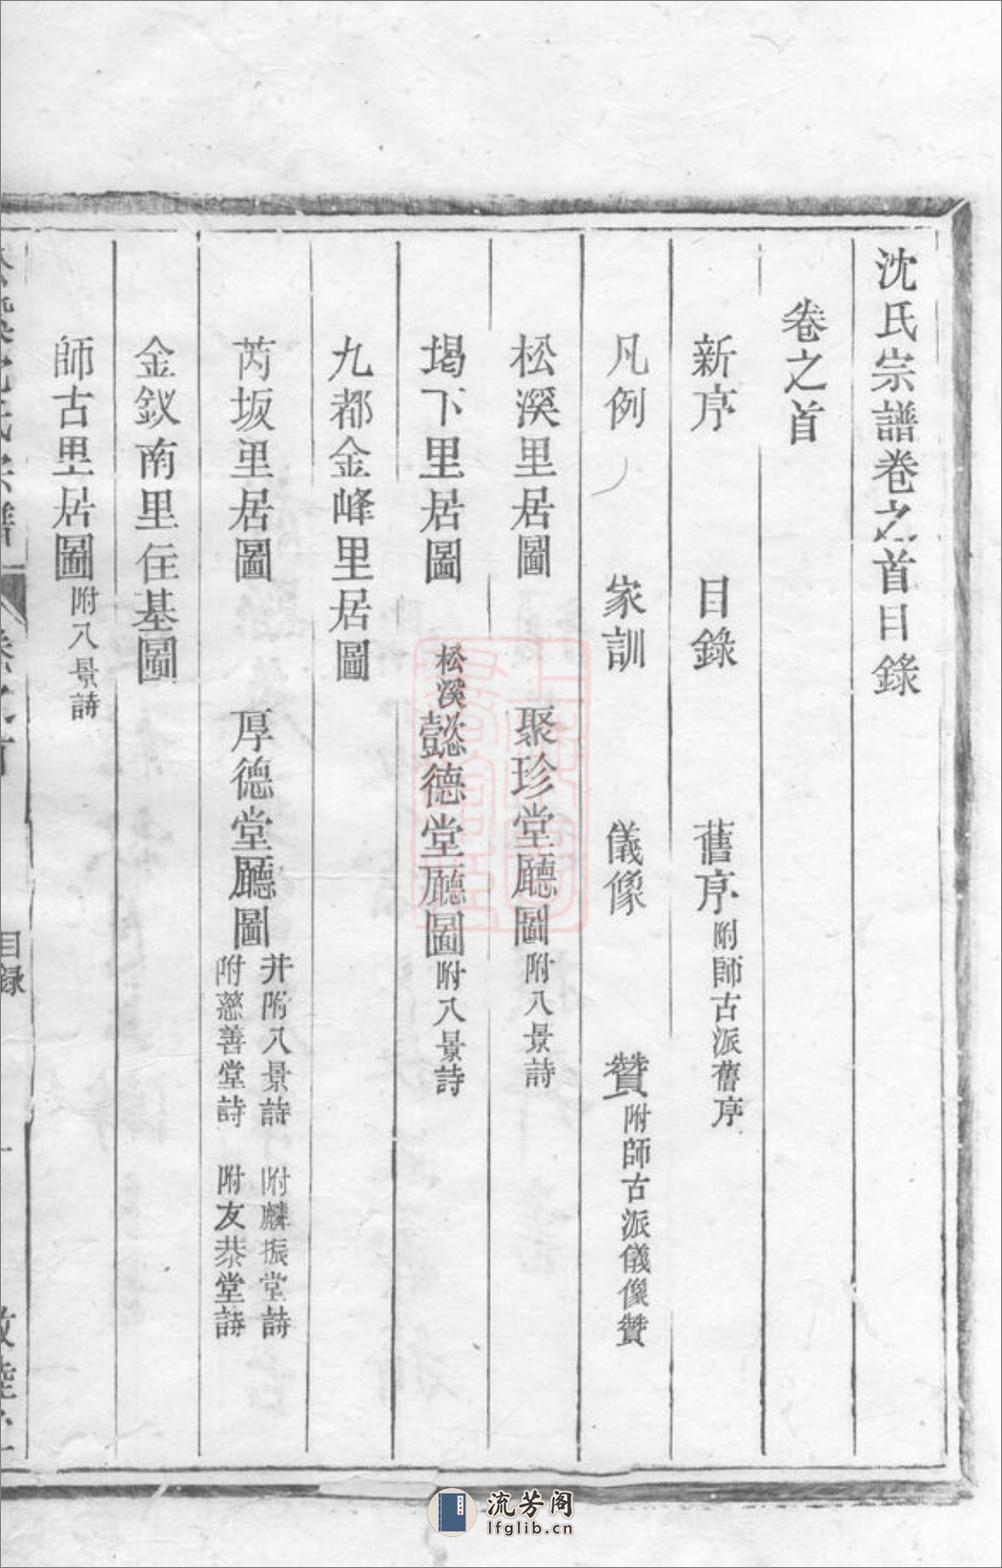 沈氏宗譜卷之首目錄
卷之首
新序　目錄　舊序附師古派舊序
凡例　家訓　儀像　贊附師古派儀像贊
松溪里居圖　聚珍堂廳圖附八景詩
堨下里居圖　松溪懿德堂廳圖附八景詩
九都金峰里居圖
芮坂里居圖　厚德堂廳圖并附八景詩　附麟振堂詩
附慈善堂詩　附友恭堂詩
金釵南里住基圖
師古里居圖附八景詩
目錄
流芳阁
lfglib.cn